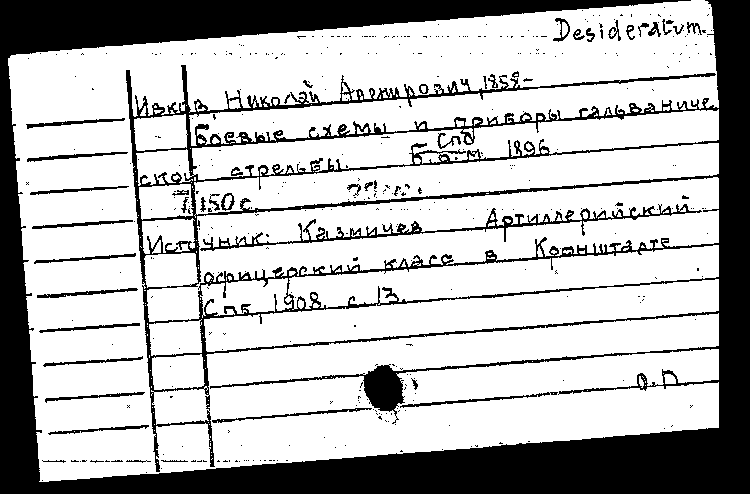 Desideratum.
Ивков, Николай Апенирович, 1858-
Боевые схемы и приборы гальваниче
ской стрельбы. Б.о.м. Спб 1896.
150 с.
Источник: Казмичев Артиллерийский
офицерский класс в Кронштадте
Спб, 1908. с. 13.
О.П